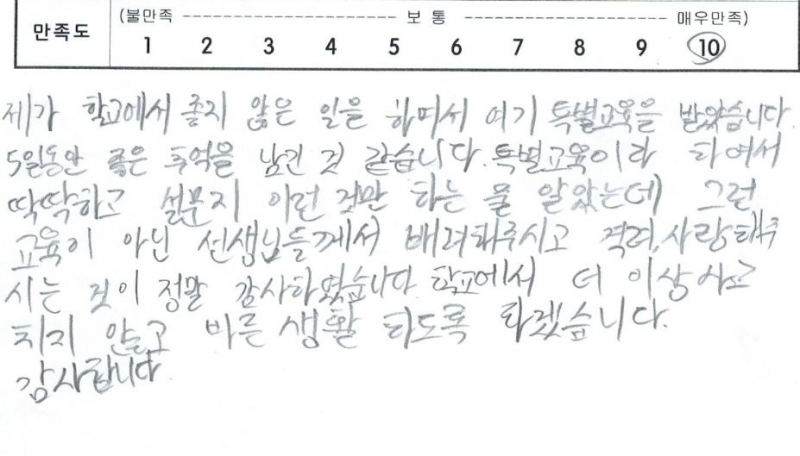 (불만족 보 통 매우만족)
만족도 1 2 3 4 5 6 7 8 9 10
제가 학교에서 좋지 않은 일을 하며서 여기 특별교육을 받았습니다.
5일동안 좋은 추억을 남긴 것 같습니다. 특별교육이라 하여서
딱딱하고 설문지 이런 것만 하는 물 알았는데 그런
교육이 아닌 선생님들께서 배려해주시고 격려, 사랑해주
시는 것이 정말 감사하였습니다 학교에서 더 이상 사고
치지 안들고 바른 생활 하도록 하겠습니다.
감사합니다